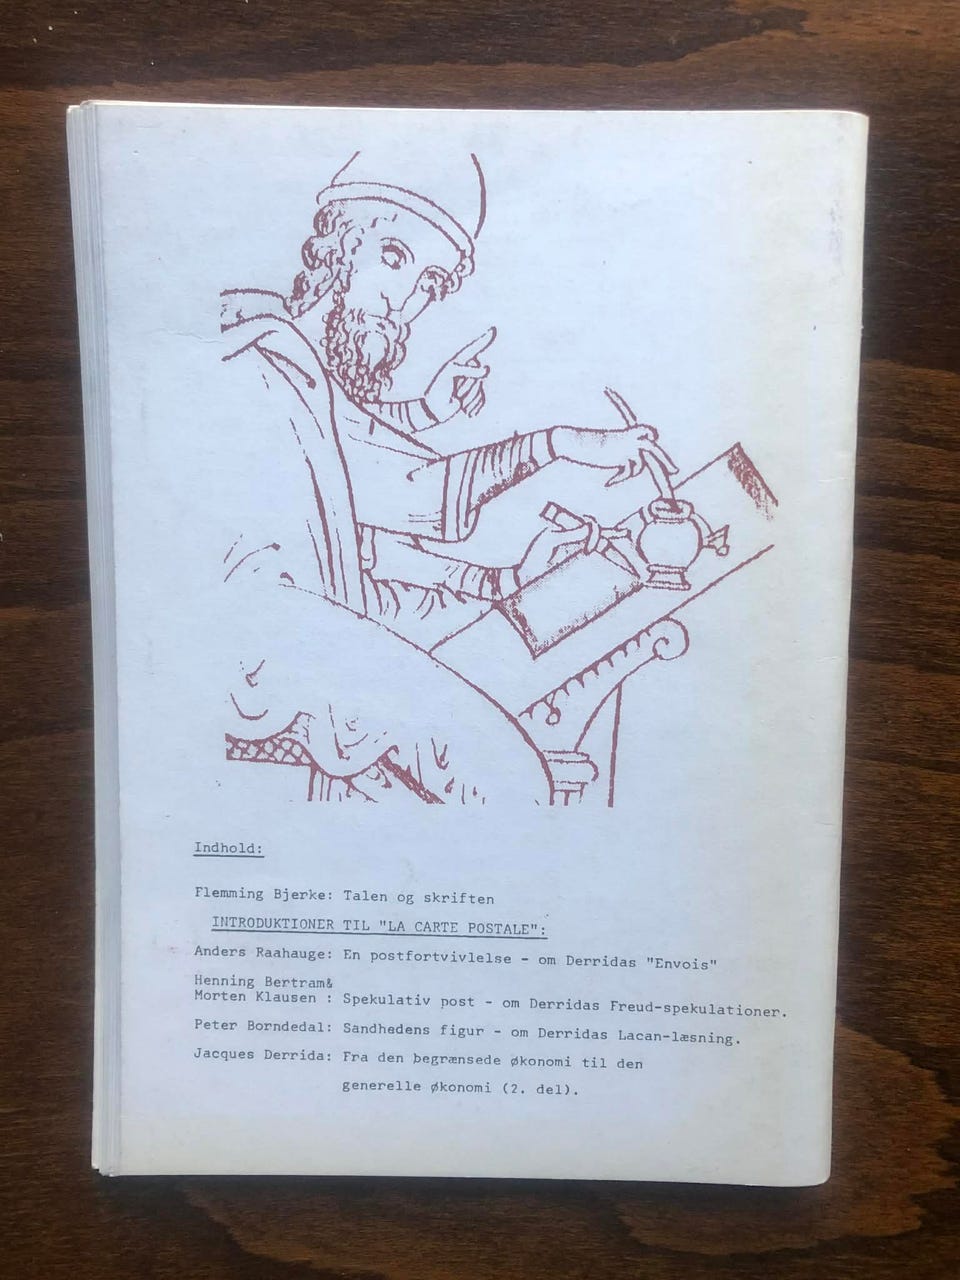 Indhold:
Flemming Bjerke: Talen og skriften
INTRODUKTIONER TIL "LA CARTE POSTALE":
Anders Raahauge: En postfortvivlelse - om Derridas "Envois"
Henning Bertram&
Morten Klausen : Spekulativ post - om Derridas Freud-spekulationer.
Peter Borndedal: Sandhedens figur - om Derridas Lacan-læsning.
Jacques Derrida: Fra den begrænsede økonomi til den
generelle økonomi (2. del).